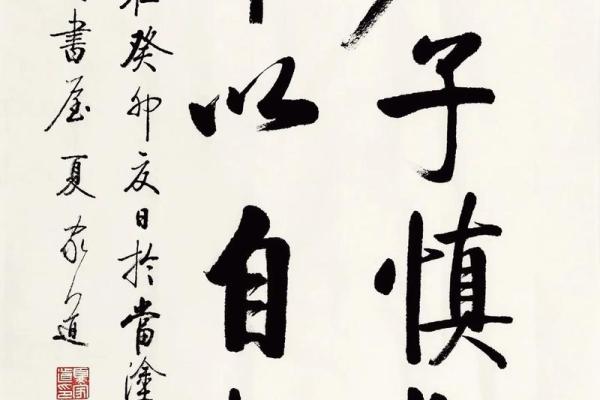 子慎
以自
癸卯夏日於當塗
書屋夏家道